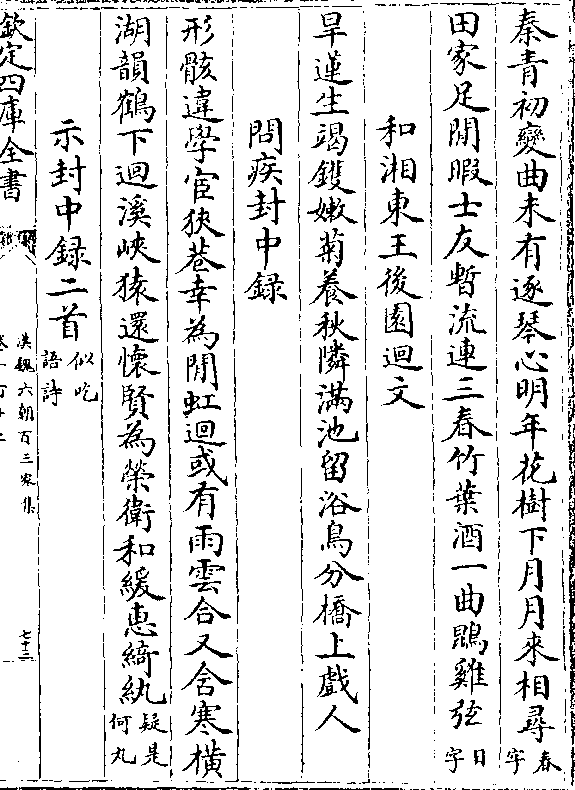 秦青初變曲未有逐琴心明年花樹下月月來相尋春字
田家足閒暇士友暫流連三春竹葉酒一曲鵾雞弦日字
和湘東王後園迴文
旱蓮生竭鑊嫩菊養秋隣滿池留浴鳥分橋上戲人
問疾封中録
形骸違學宦狹巷幸為閒虹迴或有雨雲合又含寒橫
湖韻鶴下迴溪峽猿還懷賢為榮衛和緩惠綺紈疑是何丸
示封中録二首似吃語詩
欽定四庫全書
漢魏六朝百三家集
七十三